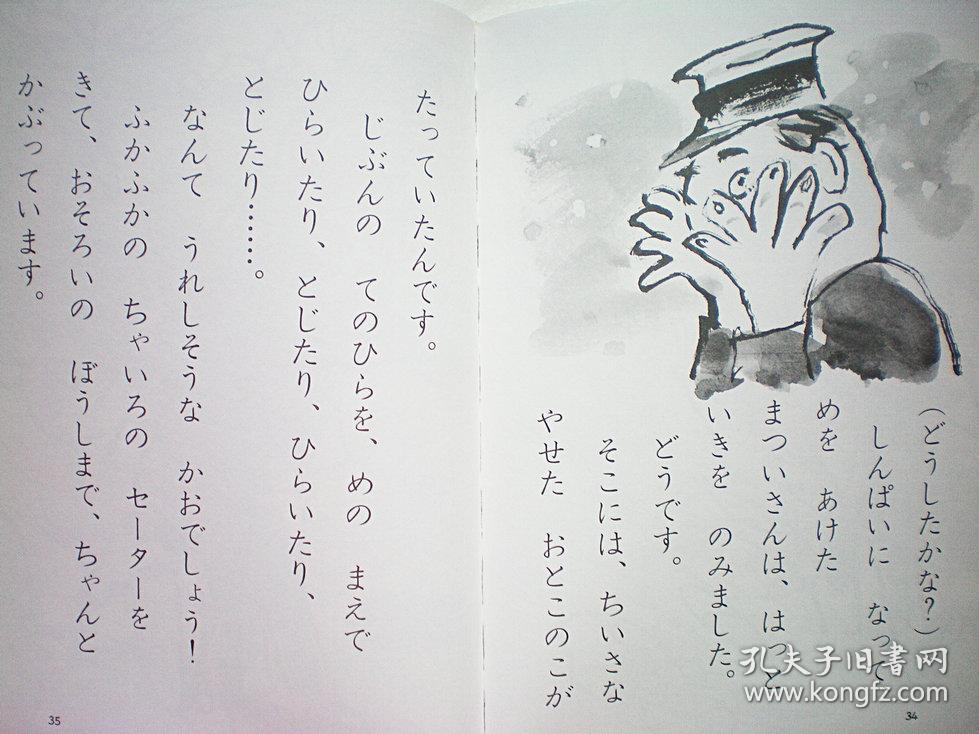 (どうしたかな?)
しんぱいに なって
めを あけた
まついさんは、はっと
いきを のみました。
どうです。
そこには、ちいさな
やせた おとこのこが
34
たっていたんです。
じぶんの てのひらを、めの まえで
ひらいたり、とじたり、ひらいたり、
とじたり……。
なんて うれしそうな かおでしょう!
ふかふかの ちゃいろの セーターを
きて、おそろいの ぼうしまで、ちゃんと
かぶっています。
35
孔夫子旧书网
www.kongfz.com